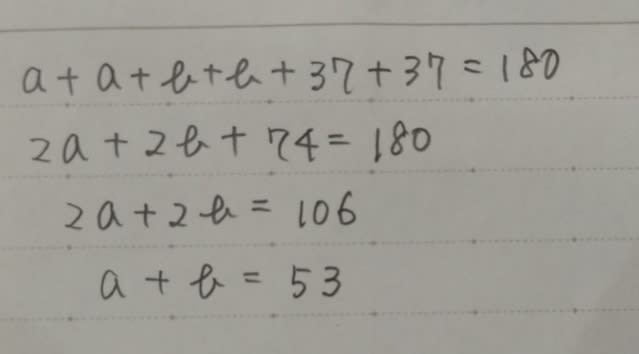 a + a + b + b + 37 + 37 = 180
2a + 2b + 74 = 180
2a + 2b = 106
a + b = 53